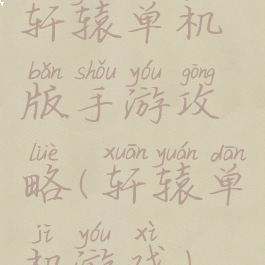 轩辕单机
bǎn shǒu yóu gōng
版手游攻
lüè xuān yuán dān
略(轩辕单
jī yóu xì
机游戏)